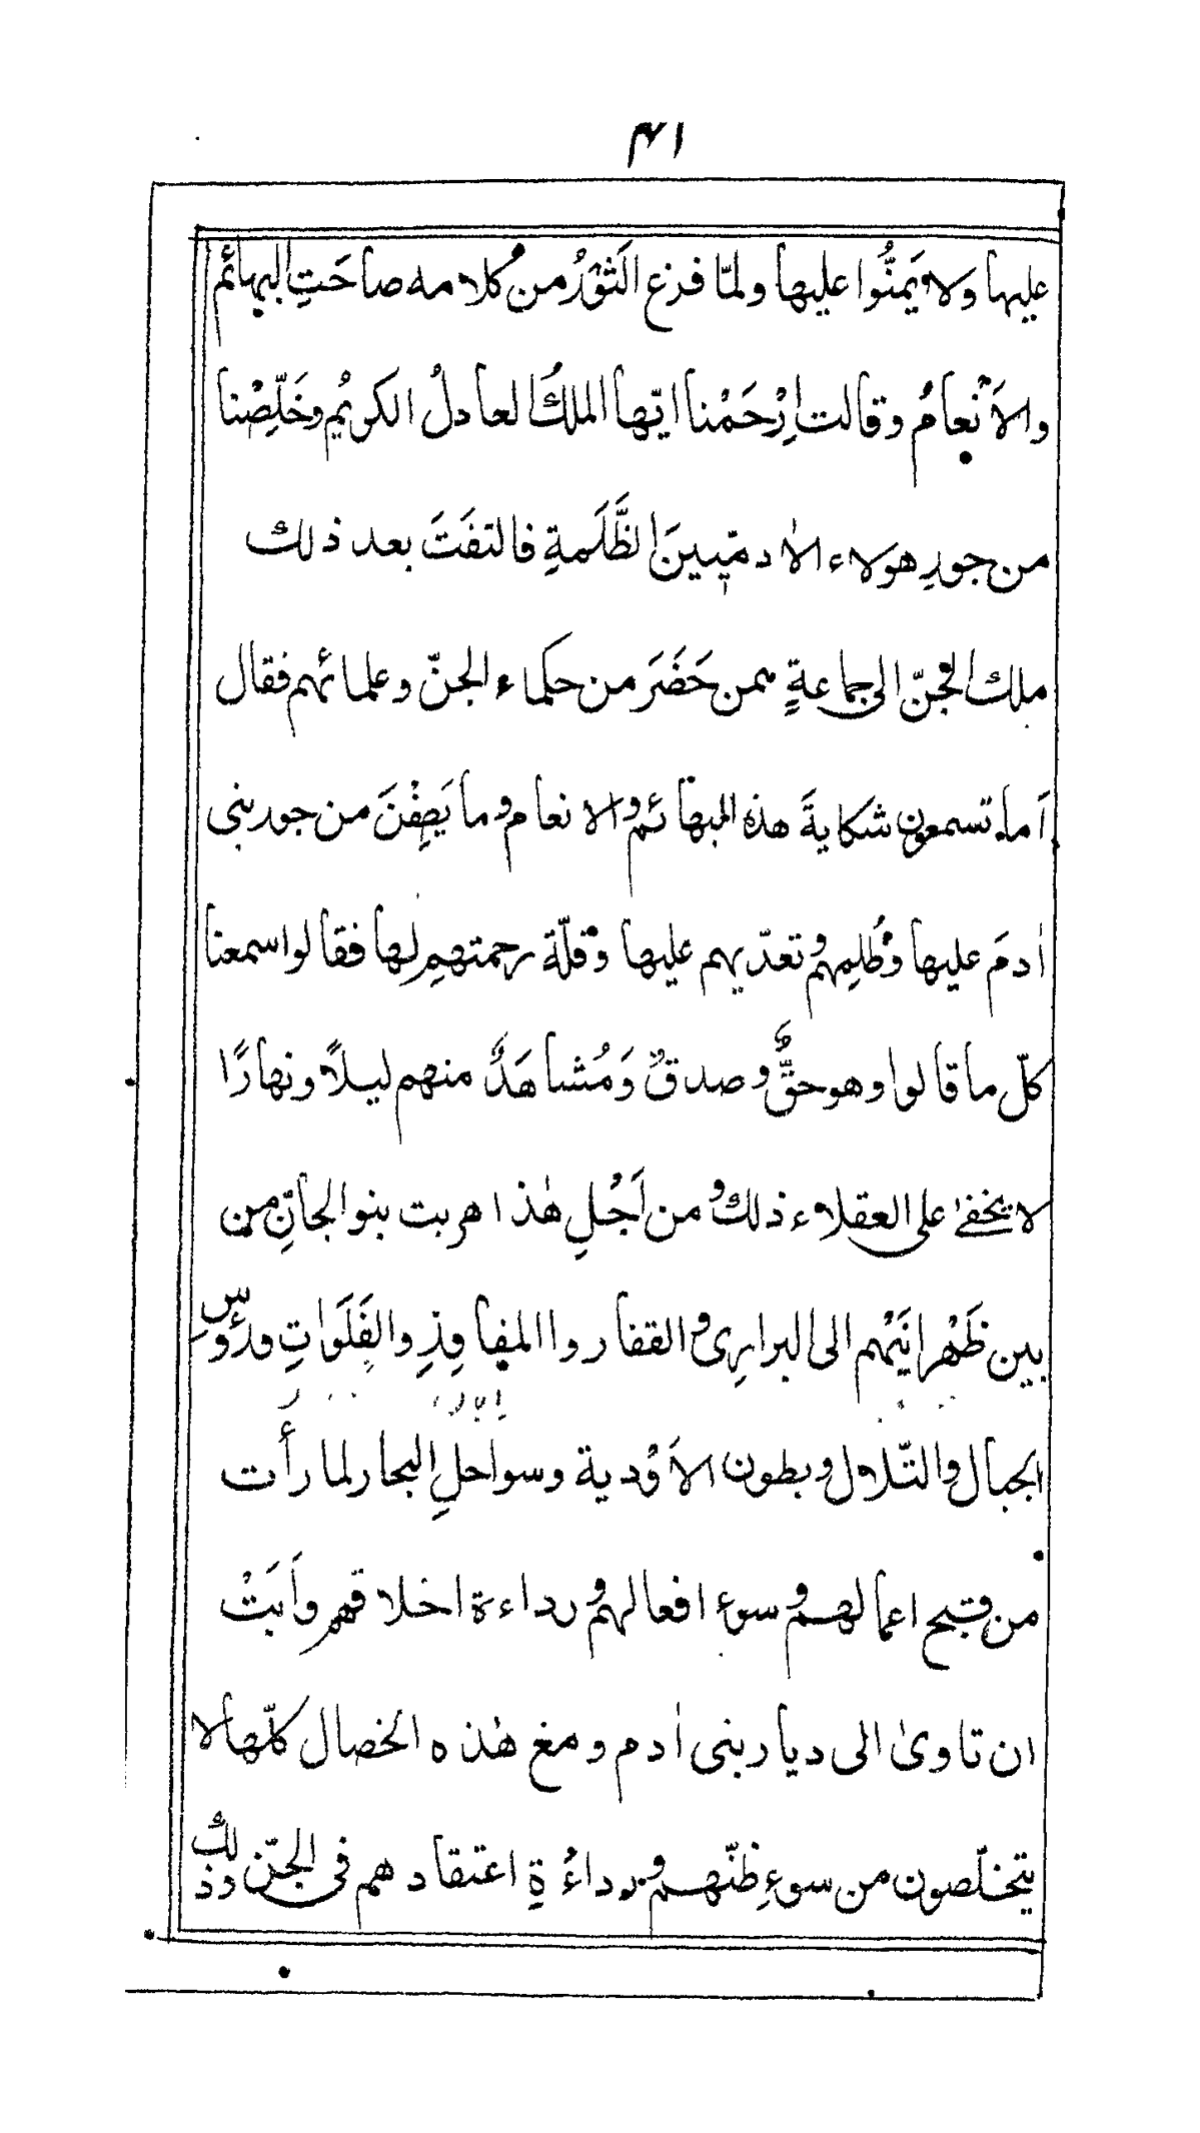 ۴۱
عليها ولا يَمنُّوا عليها ولمّا فرغ الثَورُ من كلامه صاحَتِ البهائم
والاَنْعامُ وقالت اِرْحَمْنا ايّها الملكُ العادلُ الكريمُ وخَلِّصْنا
من جورِ هولاء الاٰدميّينَ الظَّلَمةِ فالتفَتَ بعد ذلك
ملك الجنّ الى جماعةٍ ممن حَضَرَ من حكماء الجنّ وعلمائهم فقال
اَما تسمعون شكايةَ هذه البهائم والانعام وما يَصِفْنَ من جور بنى
اٰدمَ عليها وظُلمِهم وتعدّيهم عليها وقلّة رحمتهم لها فقالوا سمعنا
كلّ ما قالوا وهو حقٌّ وصدقٌ وَمُشاهَدٌ منهم ليلاً ونهارًا
لا يخفىٰ على العقلاء ذلك ومن اَجْلِ هٰذا هربت بنو الجانِّ من
بين ظَهْرانَيْهم الى البرارِى والقفار والمفاوِزِ والفَلَواتِ ورءُوسِ
الجبال والتّلال وبطون الاَوْدية وسواحلِ البحار لما رأَت
من قبح اعمالهم وسوء افعالهم ورداءة اخلاقهم واَبَتْ
ان تاوىٰ الى ديار بنى اٰدم ومع هٰذه الخصال كلّها لا
يتخلّصون من سوءِ ظنّهم ورداءُةِ اعتقادهم فى الجنّ وذلك